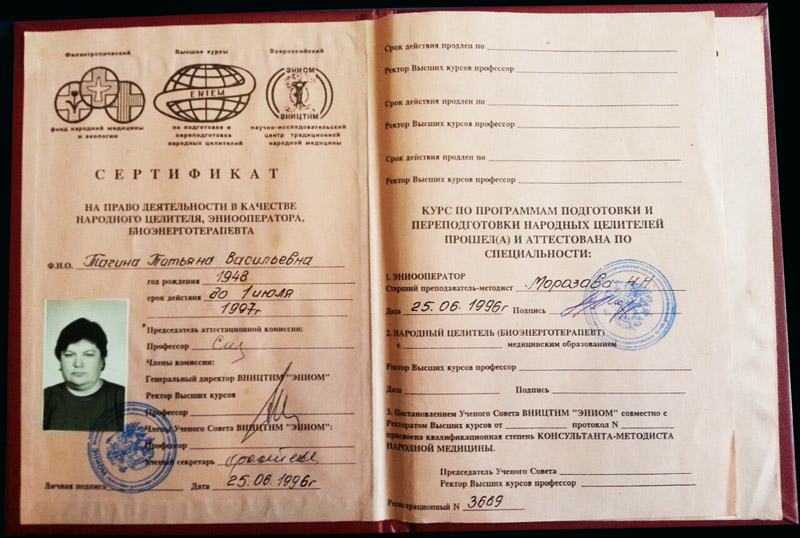 Филантропический
Высшие курсы
Всероссийский
ENIEM
ЭНИОМ
ВНИЦТНМ
фонд народной медицины
и экологии
по подготовке и
переподготовке
народных целителей
научно-исследовательский
центр традиционной
народной медицины
СЕРТИФИКАТ
НА ПРАВО ДЕЯТЕЛЬНОСТИ В КАЧЕСТВЕ
НАРОДНОГО ЦЕЛИТЕЛЯ, ЭНИООПЕРАТОРА,
БИОЭНЕРГОТЕРАПЕВТА
Ф.И.О. Тагина Татьяна Васильевна
год рождения 1948
срок действия до 1 июля
1997г
Председатель аттестационной комиссии:
Профессор
Члены комиссии:
Генеральный директор ВНИЦТНМ "ЭНИОМ"
Ректор Высших курсов
Профессор
Члены Ученого Совета ВНИЦТНМ "ЭНИОМ":
Профессор
Ученый секретарь
Личная подпись Дата 25.06.1996г
Срок действия продлен по
Ректор Высших курсов профессор
Срок действия продлен по
Ректор Высших курсов профессор
Срок действия продлен по
Ректор Высших курсов профессор
КУРС ПО ПРОГРАММАМ ПОДГОТОВКИ И
ПЕРЕПОДГОТОВКИ НАРОДНЫХ ЦЕЛИТЕЛЕЙ
ПРОШЕЛ(А) И АТТЕСТОВАНА ПО
СПЕЦИАЛЬНОСТИ:
1. ЭНИООПЕРАТОР
Старший преподаватель-методист Морозова Н.Н
Дата 25.06.1996г Подпись
2. НАРОДНЫЙ ЦЕЛИТЕЛЬ (БИОЭНЕРГОТЕРАПЕВТ)
с медицинским образованием
Ректор Высших курсов профессор
Дата Подпись
3. Постановлением Ученого Совета ВНИЦТНМ "ЭНИОМ" совместно с
Ректоратом Высших курсов от протокол N
присвоена квалификационная степень КОНСУЛЬТАНТА-МЕТОДИСТА
НАРОДНОЙ МЕДИЦИНЫ.
Председатель Ученого Совета
Ректор Высших курсов профессор
Регистрационный N 3669